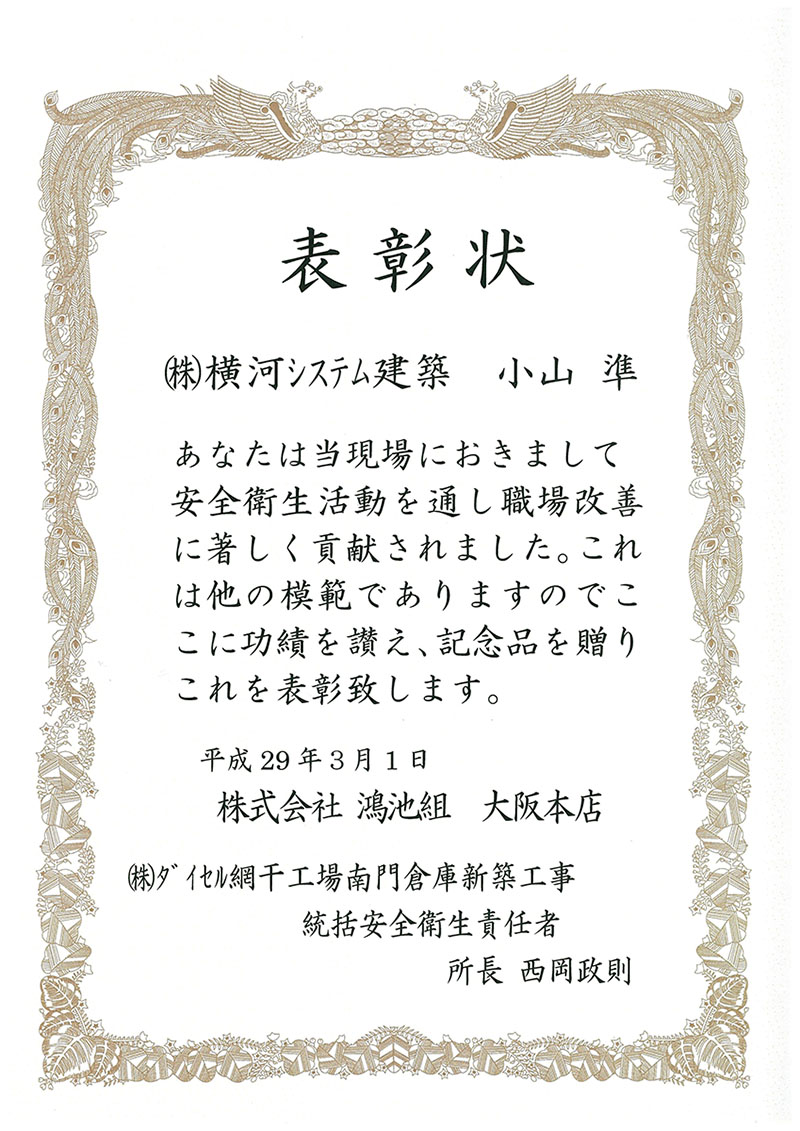 表彰状
㈱横河システム建築　小山 準
あなたは当現場におきまして
安全衛生活動を通し職場改善
に著しく貢献されました。これ
は他の模範でありますのでこ
こに功績を讃え、記念品を贈り
これを表彰致します。
平成29年3月1日
株式会社 鴻池組　大阪本店
㈱ダイセル網干工場南門倉庫新築工事
統括安全衛生責任者
所長 西岡政則